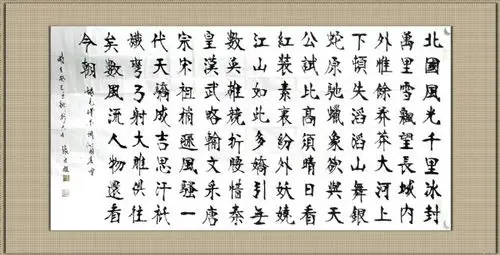 北國風光千里冰封
萬里雪飄望長城内
外惟餘莽莽大河上
下頓失滔滔山舞銀
蛇原馳蠟象欲與天
公試比高須晴日看
紅裝素裹紛外妖嬈
江山如此多嬌引无
數英雄競折腰惜秦
皇漢武略輸文采唐
宗宋祖稍遜風騷一
代天驕成吉思汗祇
識彎弓射大雕俱往
矣數風流人物還看
今朝